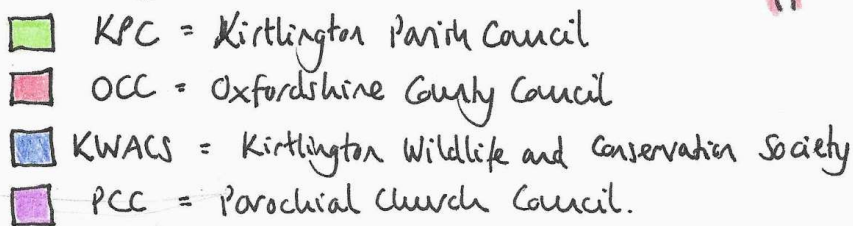 KPC = Kirtlington Parish Council
OCC = Oxfordshire County Council
KWACS = Kirtlington Wildlife and Conservation Society
PCC = Parochial Church Council.